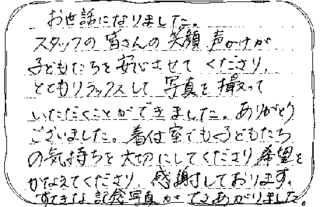 お世話になりました。
スタッフの皆さんの笑顔 声かけが
子どもたちを安心させて くださり、
とてもリラックスして 写真を撮って
いただくことができました。ありがとう
ございました。着付室でも子どもたち
の気持ちを大切にしてくださり希望を
かなえてくださり、感謝しております。
すてきな記念写真ができあがりました。